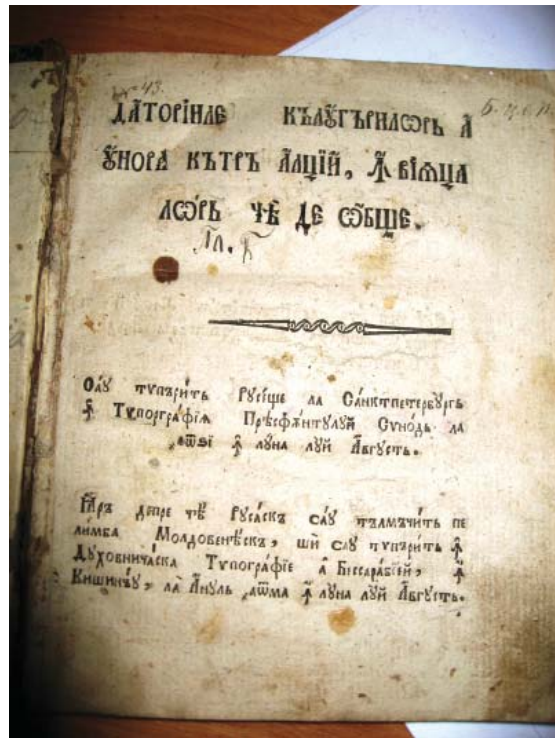 № 43.
ДАТОРІ́ИЛЕ КЪЛꙊГЪРИЛѠРЬ А
ꙊНОРА КЪТРЪ А҆ЛЦІЙ, Ꙟ҆ ВІѦЦА
ЛѠРЬ ЧѢ ДЕ ѠБЩЕ.
Сꙋ тѵпърить Рꙋсѣще ла Санктпетербꙋргь
Ꙟ Тѵпографїѧ Прѣсфѫнтꙋлꙋй Сѵнодь ла
҂аѿѕі Ꙟ лꙋна лꙋй А҆вгꙋсть.
ІАРЪ депре чѣ Рꙋсѧскъ сꙋ тълмъчить пе
лимба Молдовенѣскъ, шй сꙋ тѵпърить Ꙟ
Дꙋховничѧска Тѵпографїе а Бессарабїей, Ꙟ
Кишинъꙋ, ла А҆нꙋль ҂аѿма Ꙟ лꙋна лꙋй А҆вгꙋсть.